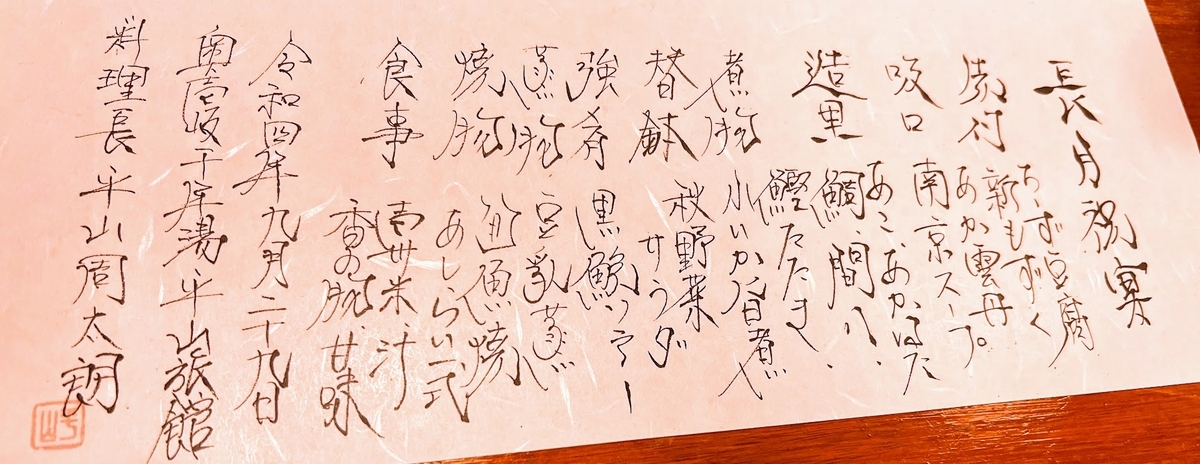 長月祝宴
先付 ちーず豆腐
新もずく
あか雲丹
吸口 南京スープ
造里 あこ、あかはた
鯛、間八、
鰹たたき
煮物 小いか旨煮
替鉢 秋野菜
サラダ
強肴 黒鮑ソテー
蒸し物 豆乳蒸し
焼物 魚焼
あしらい一式
食事 壱州米 汁
香の物 甘味
令和四年九月二十九日
奥壱岐千年湯平山旅館
料理長 平山周太朗